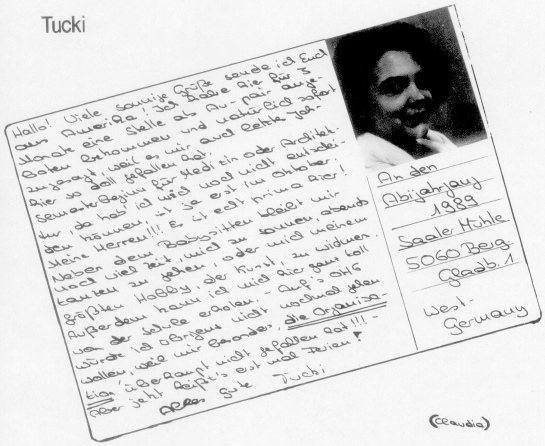 Tucki
Hallo! Viele sonnige Grüße sende ich Euch
aus Amerika! Ich habe hier für 3
Monate eine Stelle als Au-pair ange-
boten bekommen und natürlich sofort
zugesagt, weil es mir auch letzte Jahr
hier so doll gefallen hat.
Semesterbeginn für Medizin oder Architek-
tur, da hab ich mich noch nicht entschei-
den können, ist ja erst im Oktober.
Meine Herren!!! Es ist echt prima hier!
Neben dem Babysitten bleibt mir
noch viel Zeit, mich zu sonnen, abends
tanzen zu gehen, oder mich meinem
größten Hobby, der Kunst, zu widmen.
Außerdem kann ich mich hier ganz toll
von der Schule erholen. - Auf's OHG
würde ich übrigens nicht nochmal gehen
wollen, weil mir besonders "die Organisa-
tion" überhaupt nicht gefallen hat!!! -
Aber jetzt heißt's erst mal Ferien!
Alles gute Tucki
An den
Abijahrgang
1989
Saaler Mühle
5060 Berg.
Gladb. 1
West-
Germany
(Claudia)